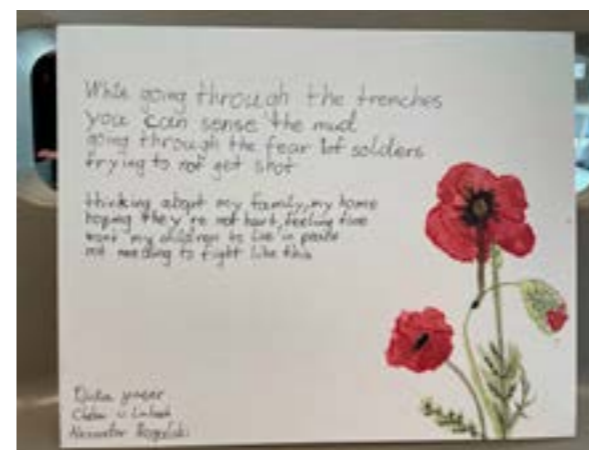 While going through the trenches
you can sense the mud
going through the fear of solders
trying to not get shot
thinking about my family, my home
hoping they're not hurt, feeling fine
want my children to live in peace
not needing to fight like this